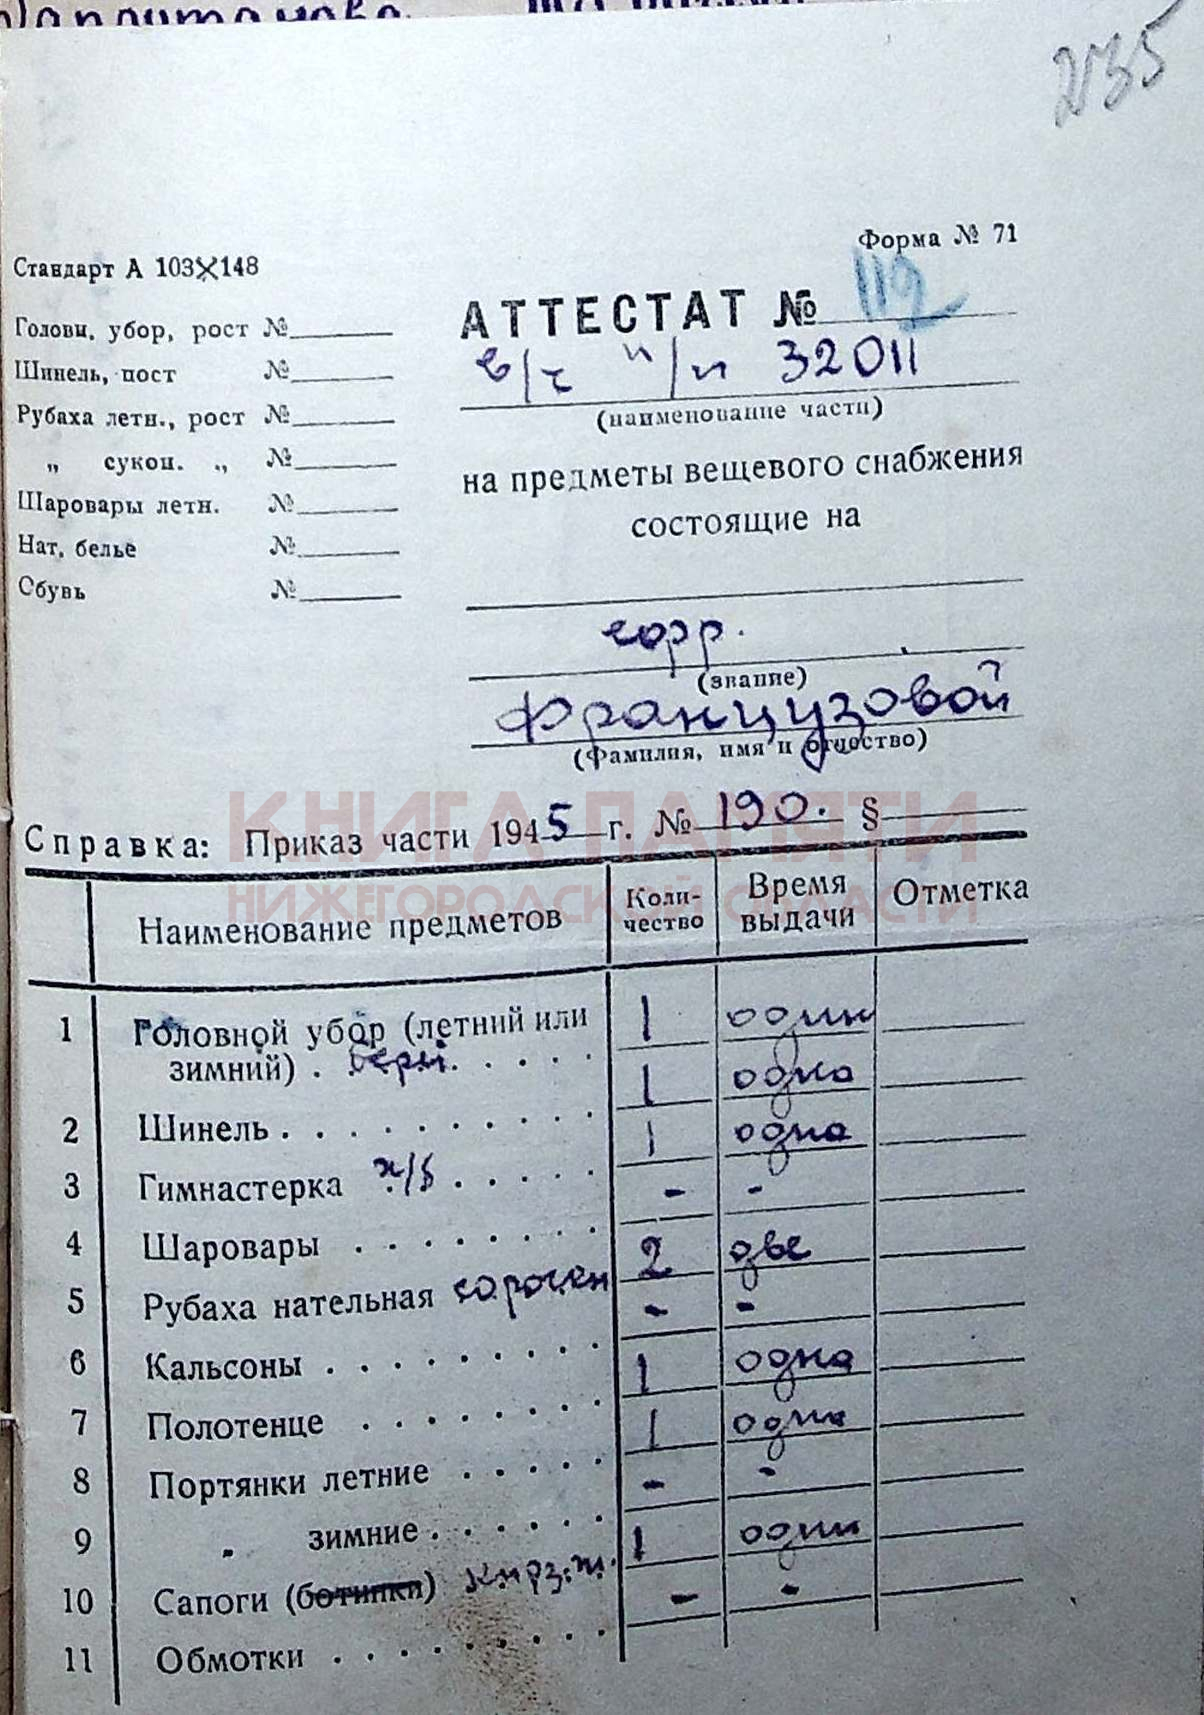 235
Форма № 71
Стандарт А 103×148
Головн, убор, рост №
Шинель, пост №
Рубаха летн., рост №
„ сукон. „ №
Шаровары летн. №
Нат, белье №
Обувь №
АТТЕСТАТ № 112
в/ч п/п 32011
(наименование части)
на предметы вещевого снабжения
состоящие на
ефр.
(звание)
Французовой
(Фамилия, имя и отчество)
КНИГА ПАМЯТИ
НИЖЕГОРОДСКОЙ ОБЛАСТИ
Справка: Приказ части 1945 г. № 190. §
Наименование предметов Коли-чество Время выдачи Отметка
1 Головной убор (летний или 1 один
зимний) . берет . . . . . 1 одна
2 Шинель . . . . . . . . . . 1 одна
3 Гимнастерка х/б . . . . . - -
4 Шаровары . . . . . . . . 2 две
5 Рубаха нательная сорочки - -
6 Кальсоны . . . . . . . . . 1 одна
7 Полотенце . . . . . . . . 1 одна
8 Портянки летние . . . . . - -
9 „ зимние . . . . . . 1 один
10 Сапоги (ботинки) - -
11 Обмотки . . . . . . . . .